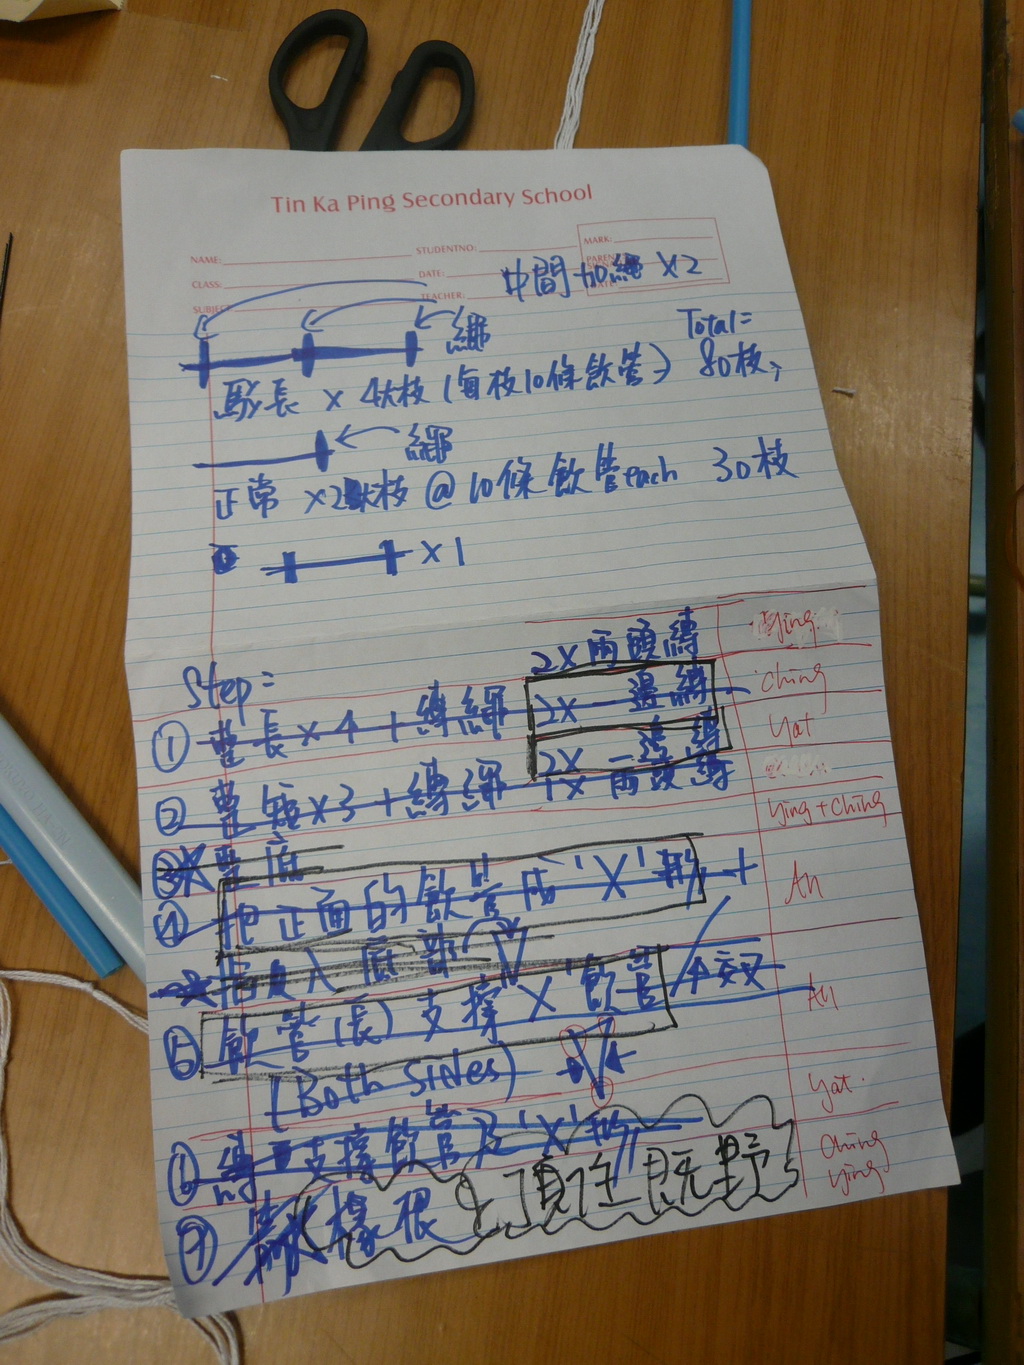 Tin Ka Ping Secondary School
NAME:
STUDENTNO:
MARK:
CLASS:
DATE:
SUBJECT
TEACHER:
中間加繩 x2
繩
Total =
長 x 4大枝 (每枝10條飲管) 80枝,
繩
正常 x2大枝 @ 10條飲管each 30枝
x1
Step =
2x 兩頭縛
Ying
① 整長 x 4 + 縛繩
2x 一邊縛
Ching
2x 一邊縛
Yat
② 整短 x3 + 縛繩
1x 兩頭縛
Ying + Ching
③ 整底
④ 把正面的飲管成 'X' 形 +
An
底部
⑤ 飲管(長) 支撐 'X' 飲管
交叉
An
(Both Sides)
Yat.
⑥ 縛 支撐飲管及 'X' 形
Ching
Ying
⑦ 頂住既野